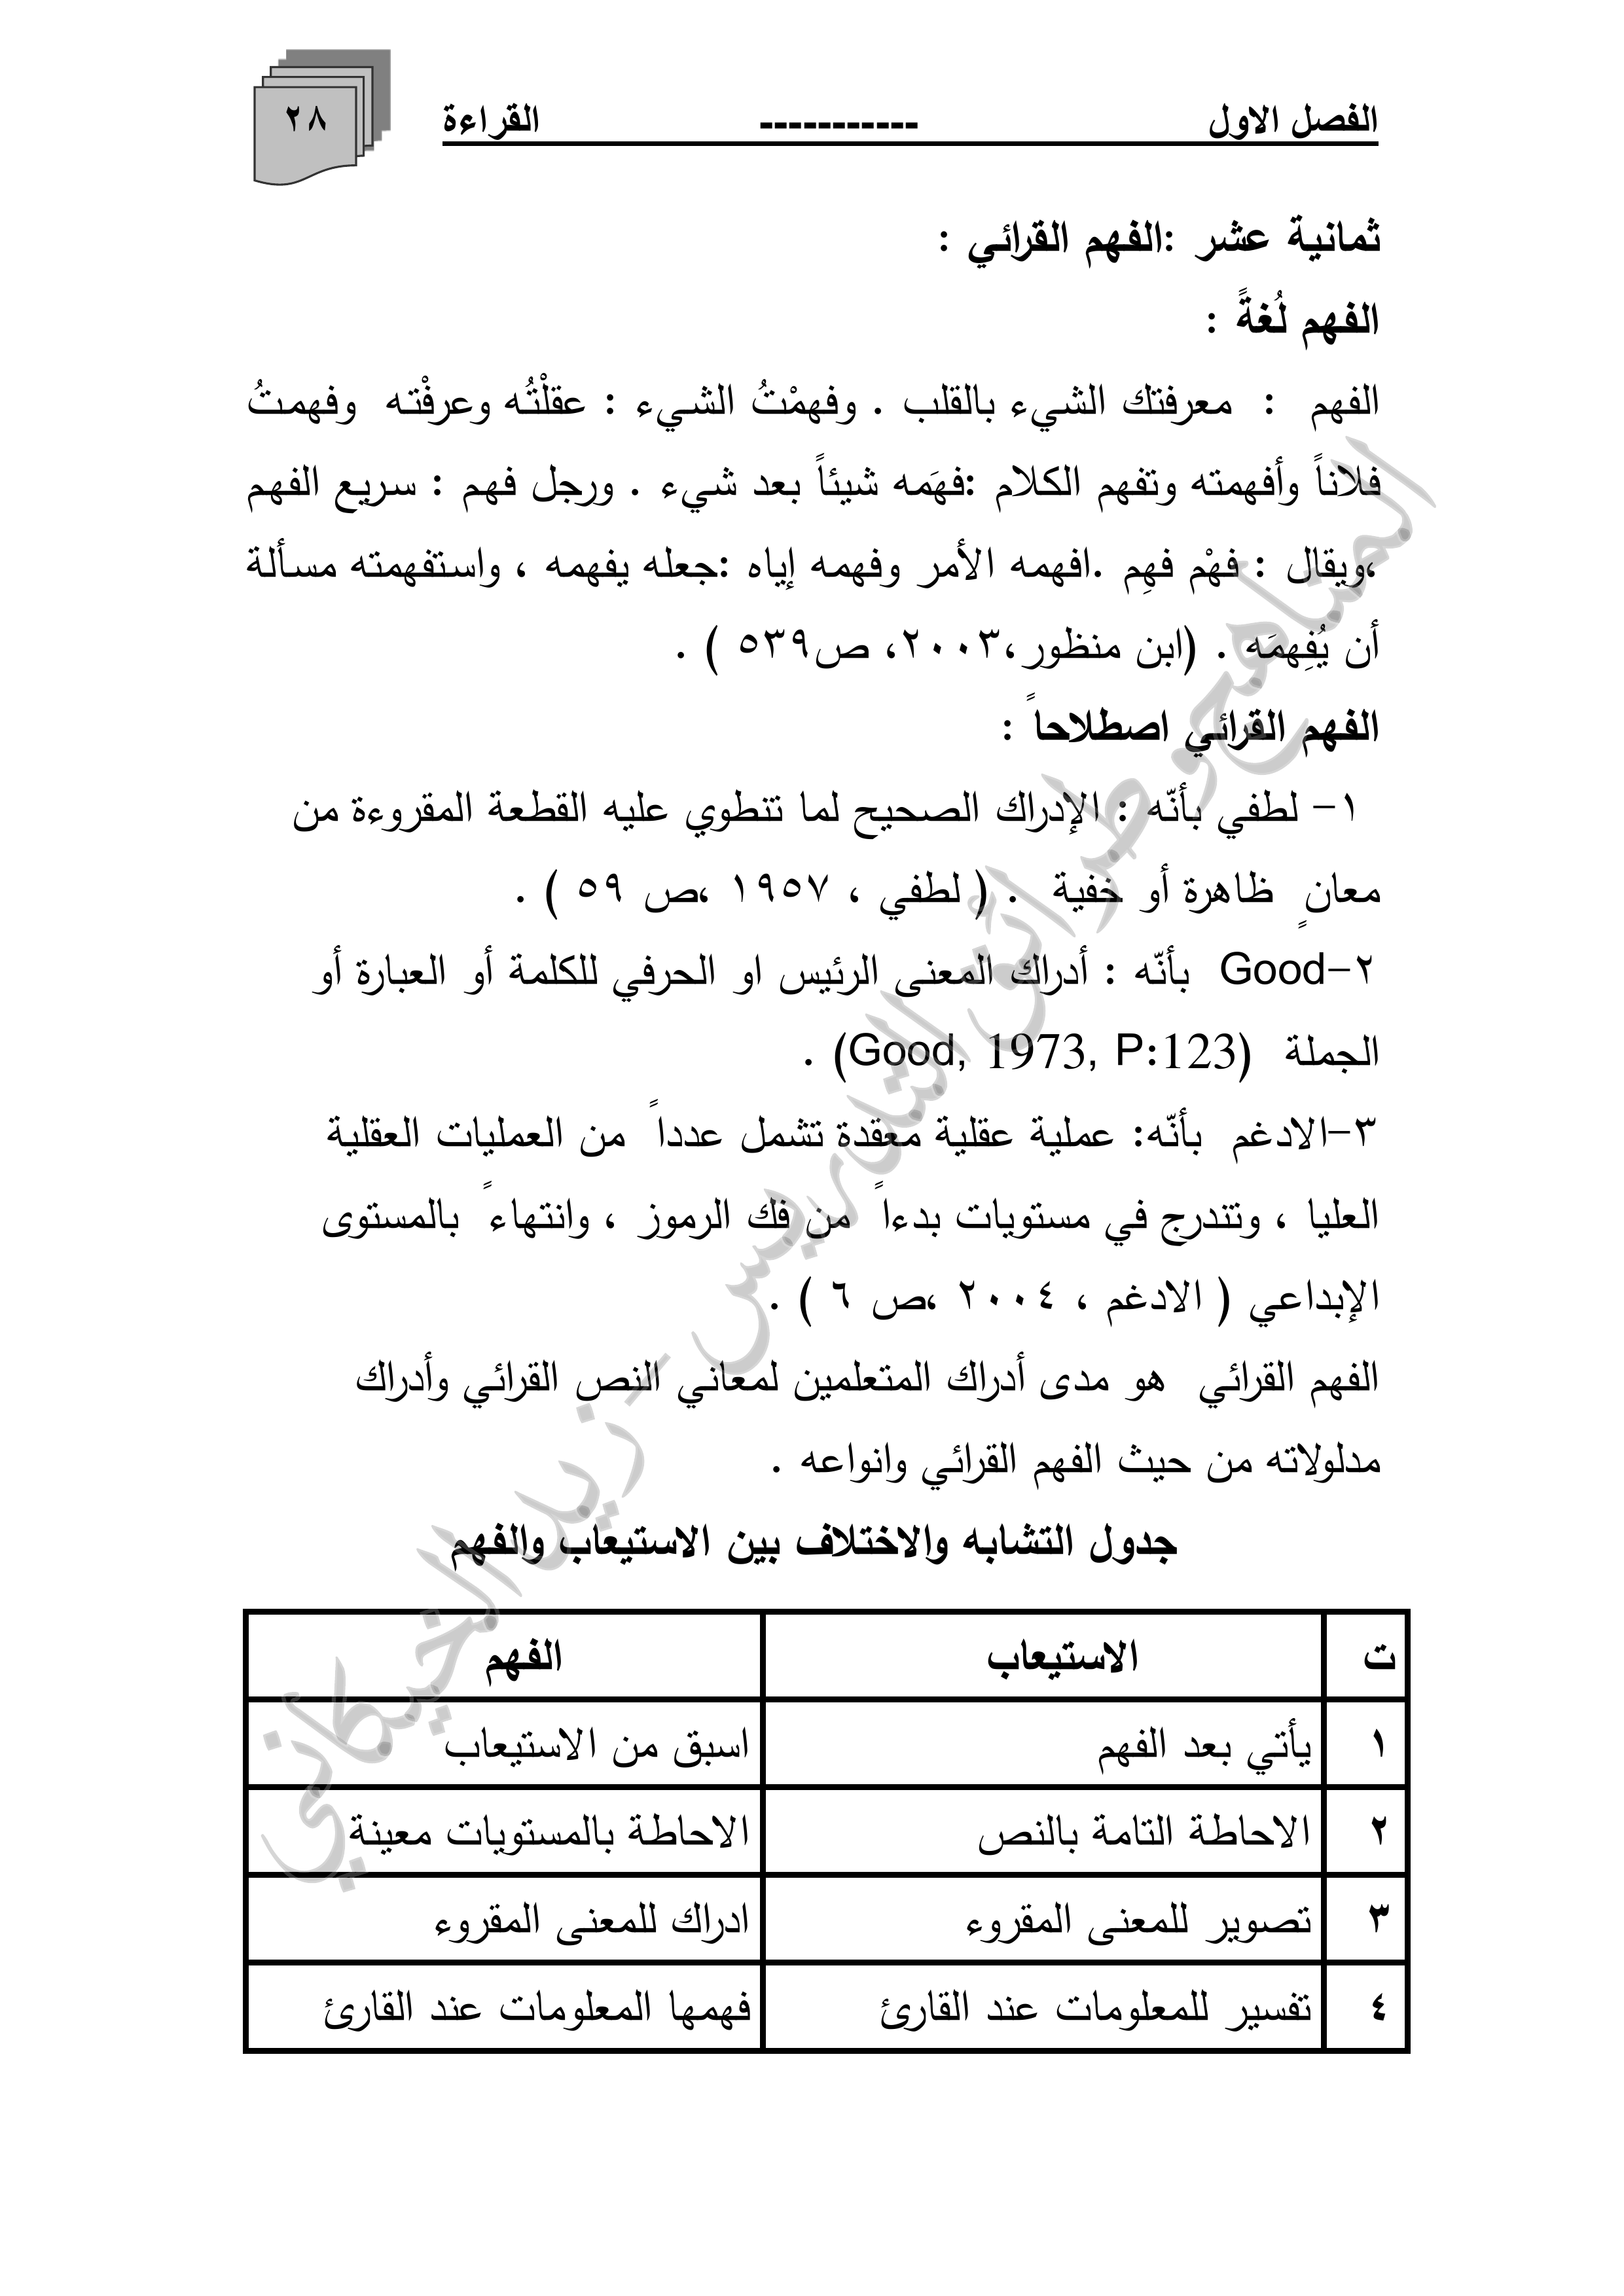 الفصل الاول ----------- القراءة
٢٨
ثمانية عشر :الفهم القرائي :
الفهم لُغةً :
الفهم : معرفتك الشيء بالقلب . وفهمْتُ الشيء : عقلْتُه وعرفْته وفهمتُ
فلاناً وأفهمته وتفهم الكلام :فهَمه شيئاً بعد شيء . ورجل فهم : سريع الفهم
،ويقال : فهْم فهِم .افهمه الأمر وفهمه إياه :جعله يفهمه ، واستفهمته مسألة
أن يُفِهمَه . (ابن منظور،٢٠٠٣، ص٥٣٩ ) .
الفهم القرائي اصطلاحاً :
١- لطفي بأنّه : الإدراك الصحيح لما تتطوي عليه القطعة المقروءة من
معانٍ ظاهرة أو خفية . ( لطفي ، ١٩٥٧ ،ص ٥٩ ) .
٢-Good بأنّه : أدراك المعنى الرئيس او الحرفي للكلمة أو العبارة أو
الجملة (Good, 1973, P:123) .
٣-الادغم بأنّه: عملية عقلية معقدة تشمل عدداً من العمليات العقلية
العليا ، وتتدرج في مستويات بدءاً من فك الرموز ، وانتهاءً بالمستوى
الإبداعي ( الادغم ، ٢٠٠٤ ،ص ٦ ) .
الفهم القرائي هو مدى أدراك المتعلمين لمعاني النص القرائي وأدراك
مدلولاته من حيث الفهم القرائي وانواعه .
جدول التشابه والاختلاف بين الاستيعاب والفهم
ت الاستيعاب الفهم
١ يأتي بعد الفهم اسبق من الاستيعاب
٢ الاحاطة التامة بالنص الاحاطة بالمستويات معينة
٣ تصوير للمعنى المقروء ادراك للمعنى المقروء
٤ تفسير للمعلومات عند القارئ فهمها المعلومات عند القارئ
المناهج وطرائق التدريس - زيد الخيكاني